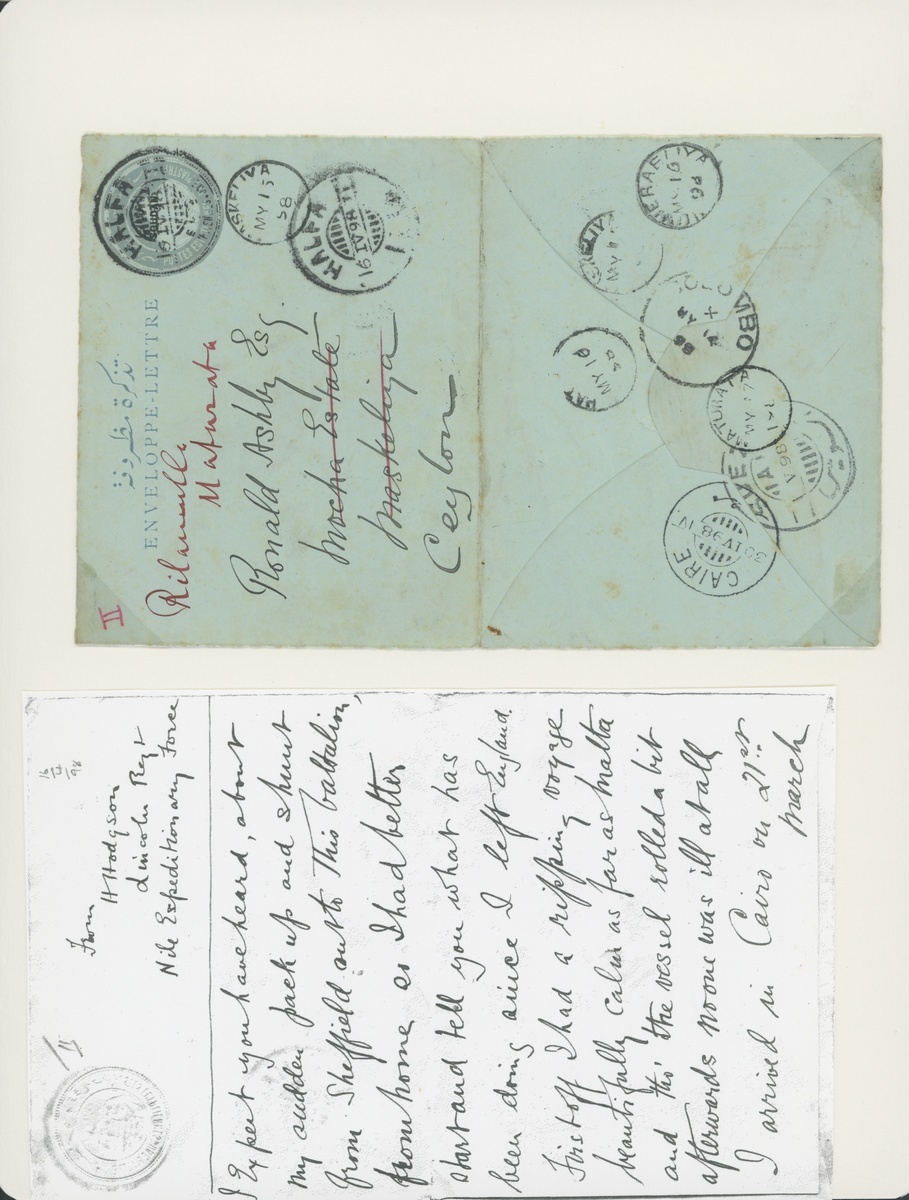 HALFA
16 IV 98
MY 15
98
HALFA
16 IV 98
تذكرة مظروف
ENVELOPPE-LETTRE
II
Maturata
Ronald Ashby Esq.
Mocha Estate
Maskeliya
Ceylon
MY 16
98
MY
MY 19
MBO
MY 17
98
CAIRE
30 IV 98
16/4/98
From
H Hodgson
Lincoln Regt
Nile Expeditionary Force
II
I Expect you have heard, about
my sudden pack up and shunt
from Sheffield out to this battalion,
from home so I had better
start and tell you what has
been doing since I left England.
First off I had a ripping voyage
beautifully calm as far as Malta
and tho' the vessel rolled a bit
afterwards no one was ill at all
I arrived in Cairo on 21st
March